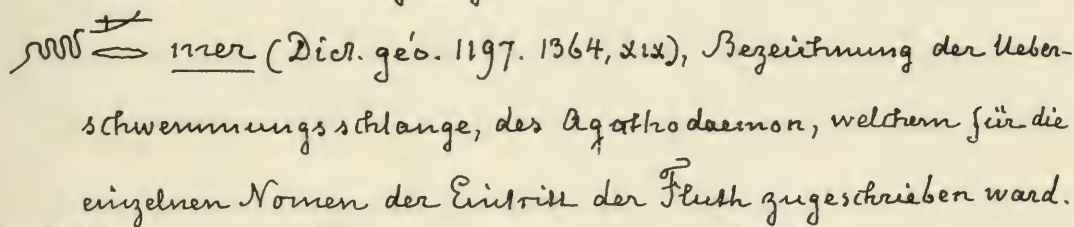 mer (Dict. géo. 1197. 1364, XIX), Bezeichnung der Ueber-
schwemmungsschlange, des Agathodaemon, welchem für die
einzelnen Nomen der Eintritt der Fluth zugeschrieben ward.